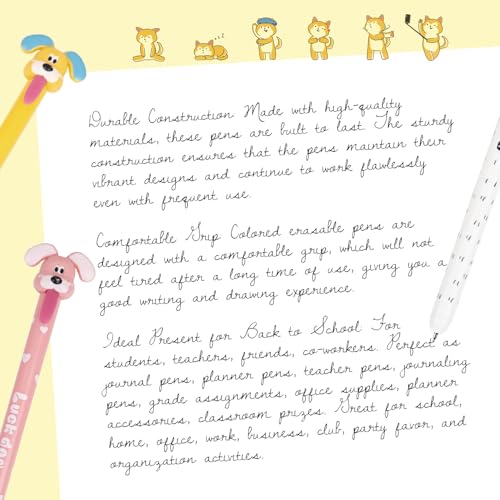 Durable Construction Made with high-quality
materials, these pens are built to last The sturdy
construction ensures that the pens maintain their
vibrant designs and continue to work flawlessly
even with frequent use.
Comfortable Grip Colored erasable pens are
designed with a comfortable grip, which will not
feel tired after a long time of use, giving you a
good writing and drawing experience.
Ideal Present for Back to School For
students, teachers, friends, co-workers. Perfect as
journal pens, planner pens, teacher pens, journaling
pens, grade assignments, office supplies, planner
accessories, classroom prizes. Great for school,
home, office, work, business, club, party favor, and
organization activities.
Luck dog